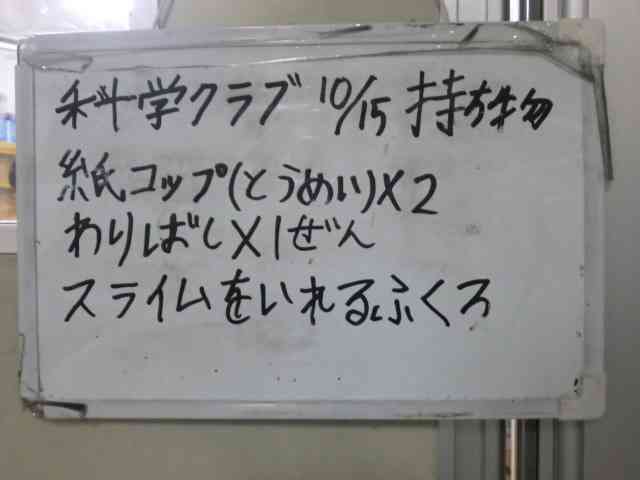 科学クラブ 10/15 持ち物
紙コップ(とうめい)×2
わりばし×1ぜん
スライムをいれるふくろ